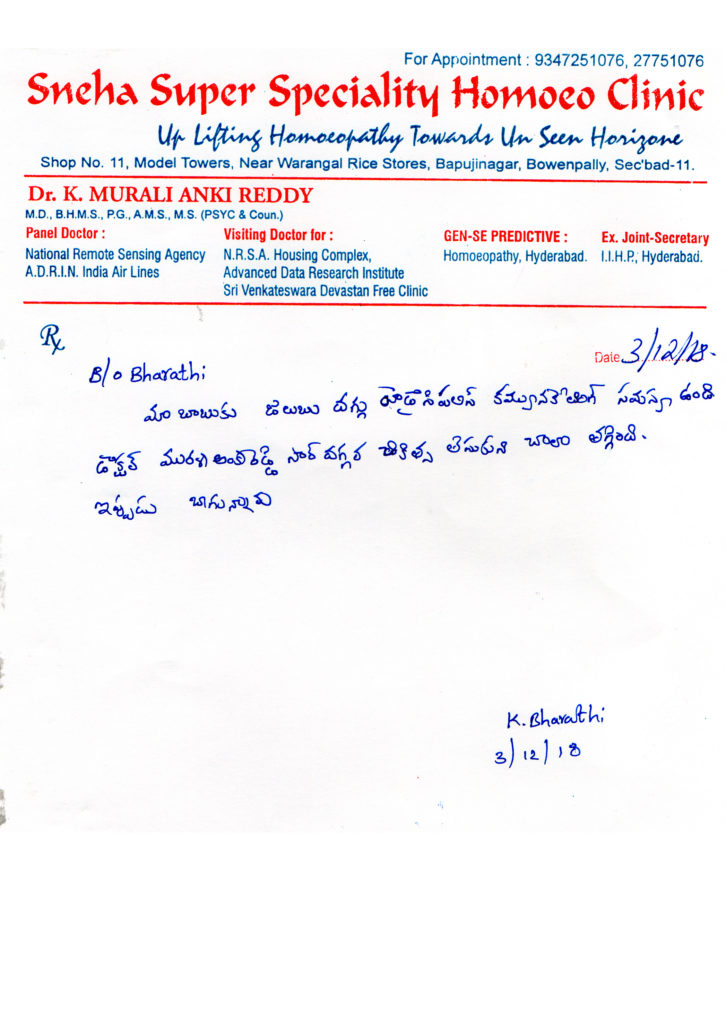 For Appointment : 9347251076, 27751076
Sneha Super Speciality Homoeo Clinic
Up Lifting Homoeopathy Towards Un Seen Horizone
Shop No. 11, Model Towers, Near Warangal Rice Stores, Bapujinagar, Bowenpally, Sec'bad-11.
Dr. K. MURALI ANKI REDDY
M.D., B.H.M.S., P.G., A.M.S., M.S. (PSYC & Coun.)
Panel Doctor :
National Remote Sensing Agency
A.D.R.I.N. India Air Lines
Visiting Doctor for :
N.R.S.A. Housing Complex,
Advanced Data Research Institute
Sri Venkateswara Devastan Free Clinic
GEN-SE PREDICTIVE :
Homoeopathy, Hyderabad.
Ex. Joint-Secretary
I.I.H.P., Hyderabad.
Rx
Date 3/12/18.
B/o Bharathi
మా బాబుకు జలుబు దగ్గు సమస్యా ఉండె
డాక్టర్ మురళి అంకిరెడ్డి సార్ దగ్గర చికిత్స తీసుకుని చాలా తగ్గింది.
ఇప్పుడు బాగున్నాడు
K. Bharathi
3/12/18